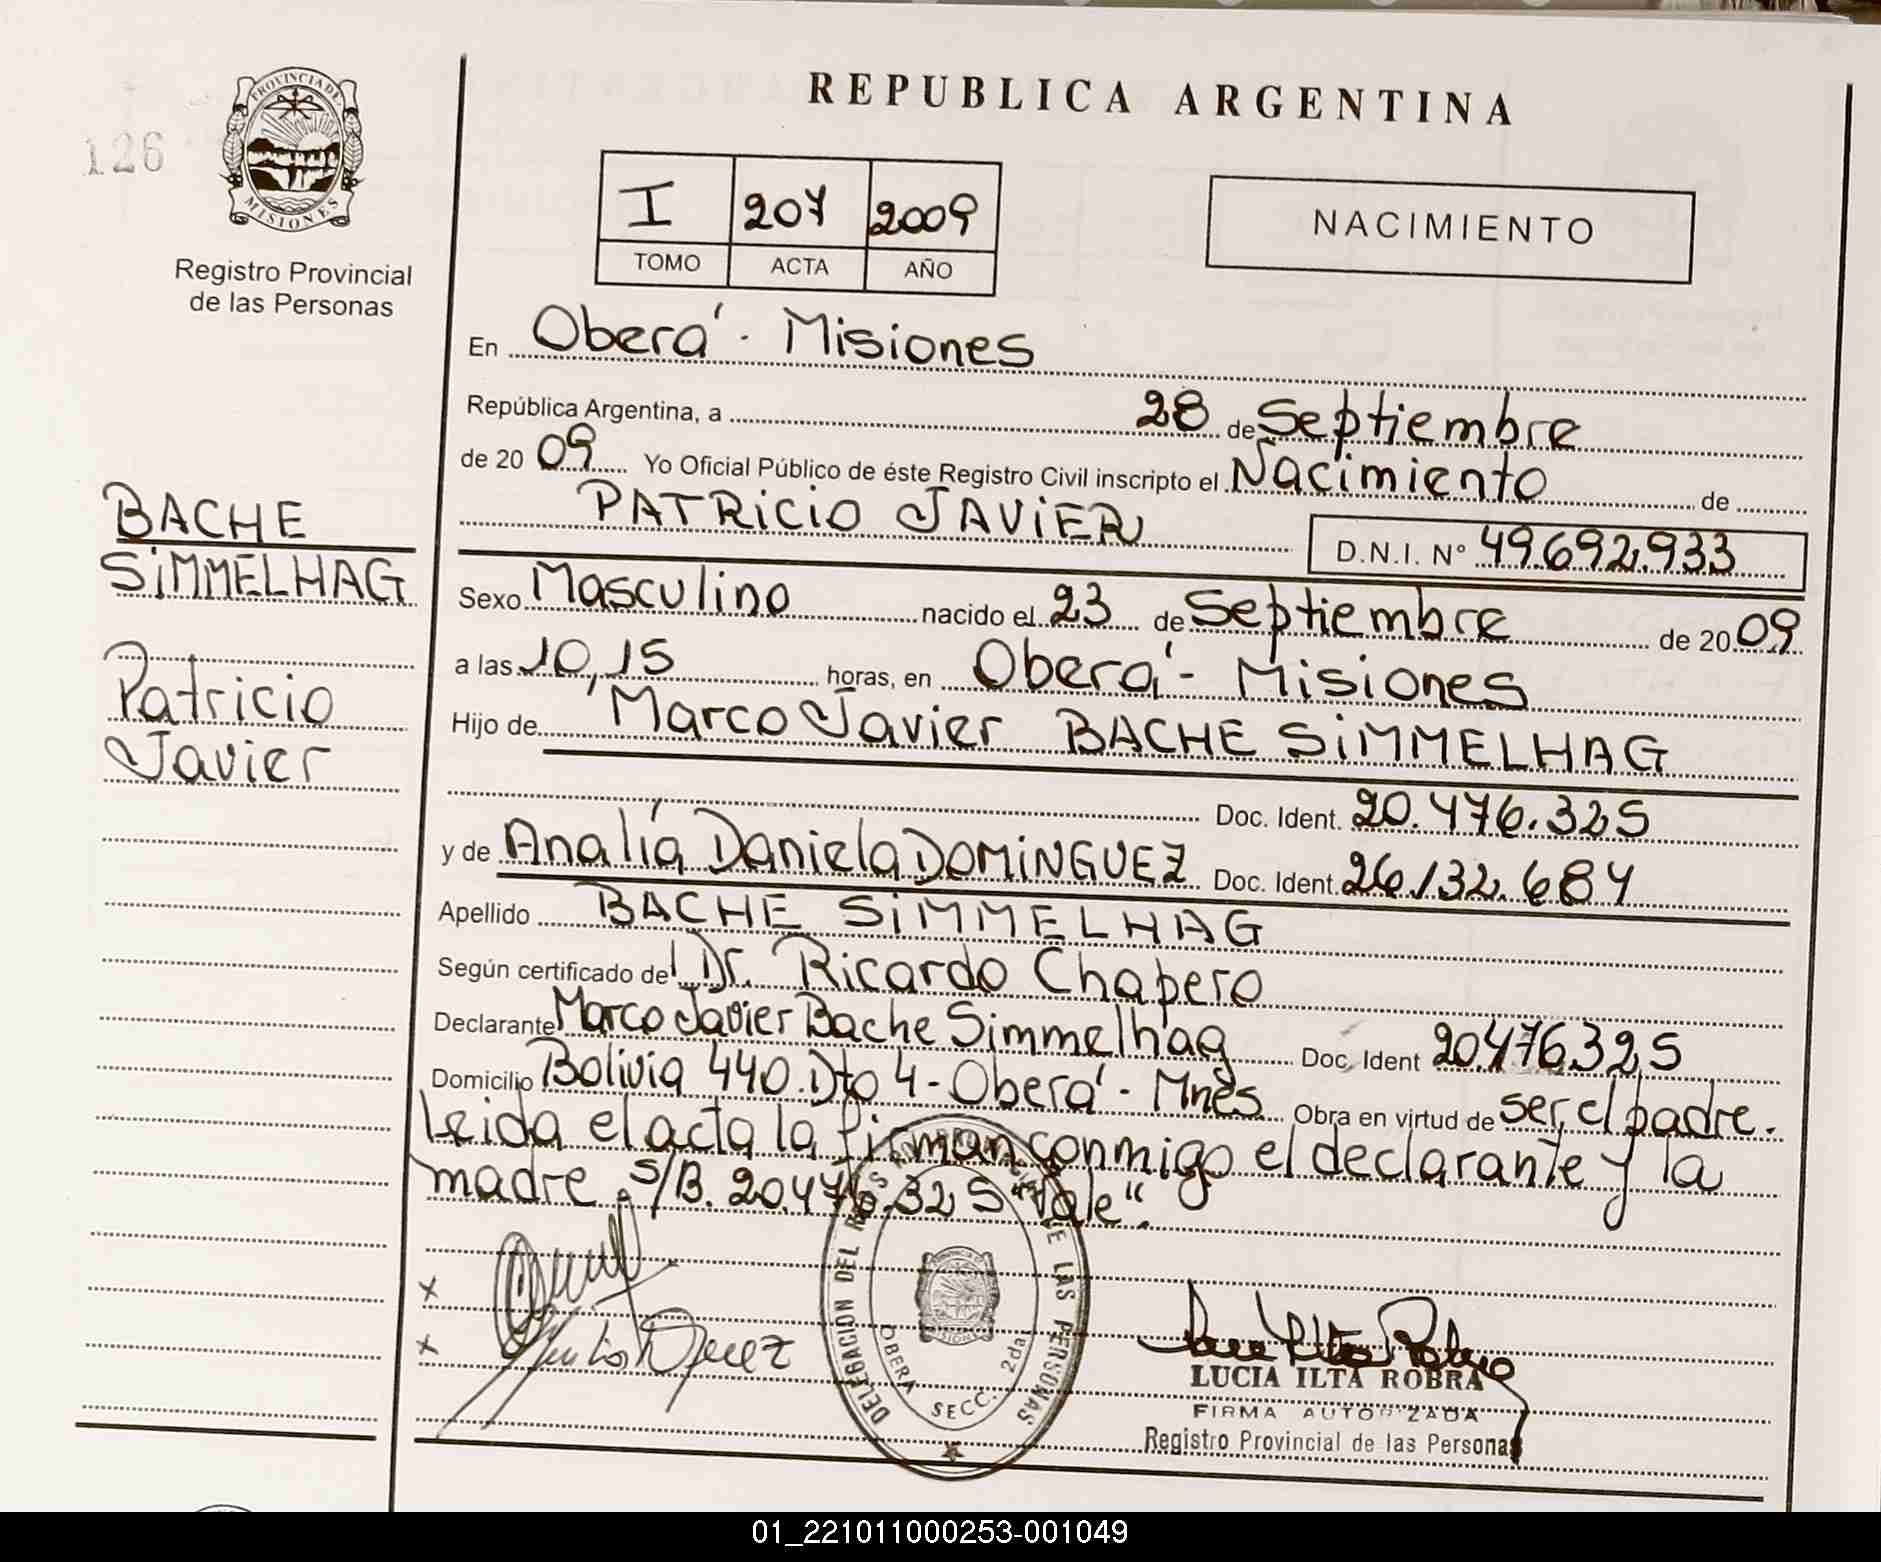 126
PROVINCIA DE
MISIONES
Registro Provincial
de las Personas
BACHE
SiMMELHAG
Patricio
Javier
REPUBLICA ARGENTINA
I 207 2009
TOMO ACTA AÑO
NACIMIENTO
En Oberá - Misiones
República Argentina, a 28 de Septiembre
de 20 09 Yo Oficial Público de éste Registro Civil inscripto el Nacimiento de
PATRiCiO JAViER D.N.I. N° 49.692.933
Sexo Masculino nacido el 23 de Septiembre de 20 09
a las 10,15 horas, en Oberá - Misiones
Hijo de Marco Javier BACHE SiMMELHAG
Doc. Ident. 20.476.325
y de Analía Daniela DOMiNGUEZ Doc. Ident. 26.132.684
Apellido BACHE SiMMELHAG
Según certificado del Dr. Ricardo Chapero
Declarante Marco Javier Bache Simmelhag Doc. Ident 20.476.325
Domicilio Bolivia 440.Dto 4 - Oberá - Mnes Obra en virtud de ser, el padre.
Leida el acta la firman conmigo el declarante y la
madre. S/B. 20.476.325 "Vale".
x
x
DELEGACION DEL DE LAS PERSONAS
OBERA SECC. 2da
LUCIA ILTA ROBRA
FIRMA AUTORIZADA
Registro Provincial de las Personas
01_221011000253-001049